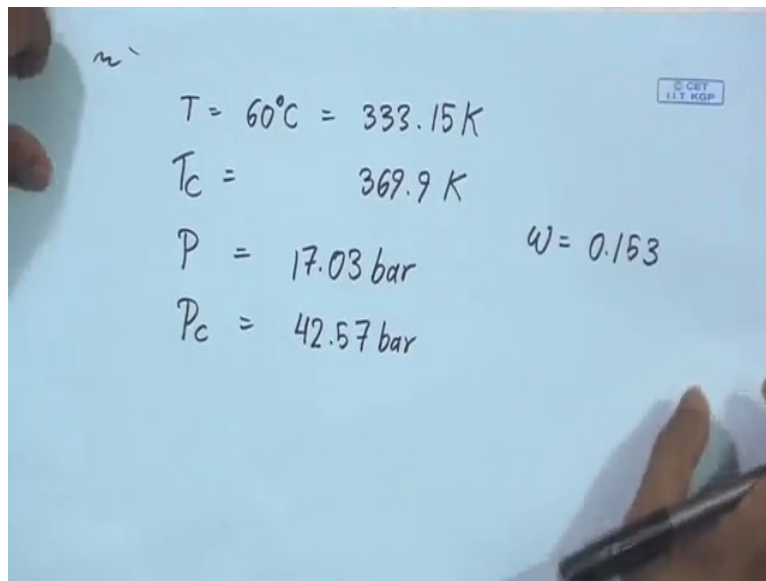 © CET
I.I.T. KGP
T = 60°C = 333.15 K
Tc = 369.9 K
P = 17.03 bar
ω = 0.153
Pc = 42.57 bar